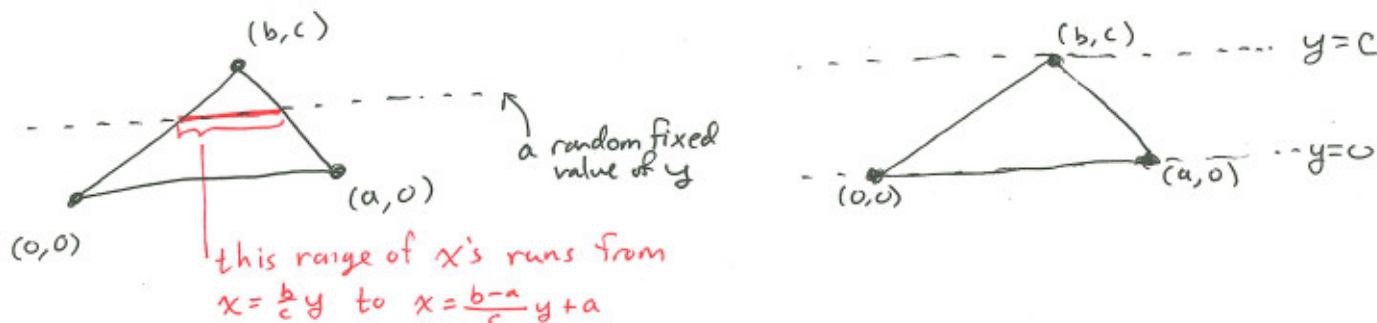 (b,c)
a random fixed
value of y
(a,0)
(0,0)
this range of x's runs from
x = b/c y to x = b-a/c y + a
(b,c)
y=c
y=0
(0,0)
(a,0)